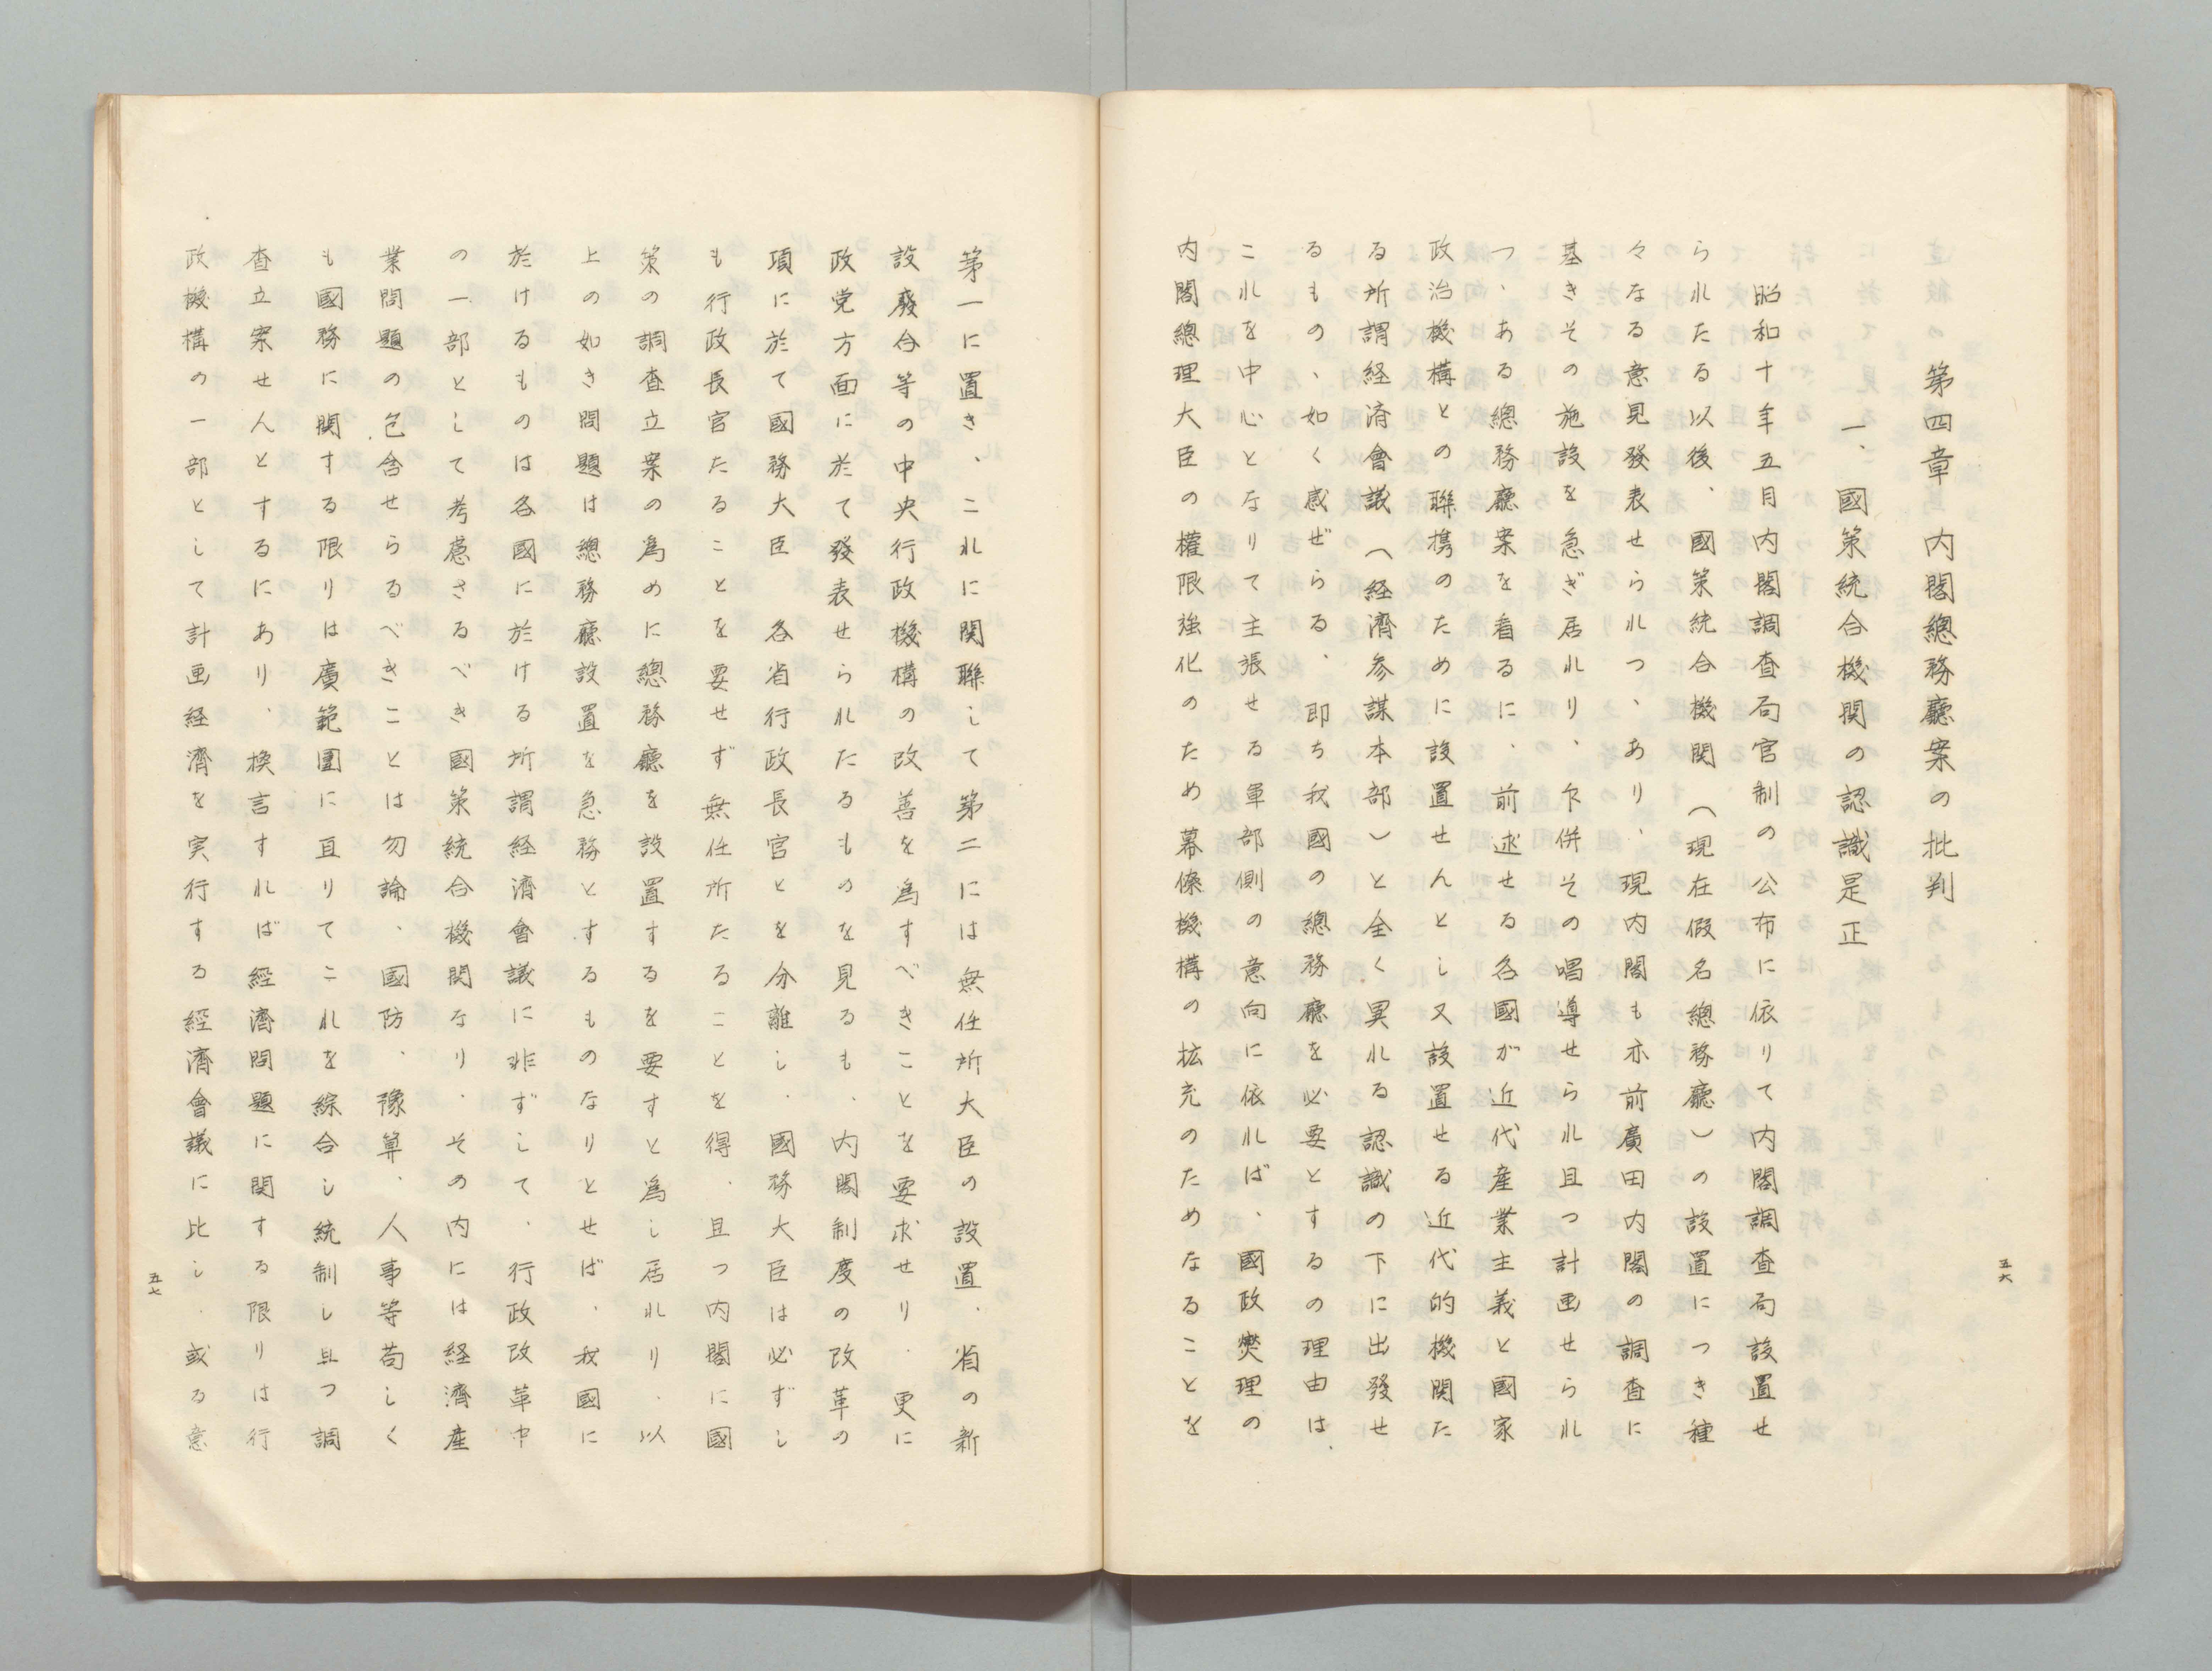 第四章　内閣總務廳案の批判
一、國策統合機関の認識是正
昭和十年五月内閣調査局官制の公布に依りて内閣調査局設置せ
られたる以後、國策統合機関（現在假名總務廳）の設置につき種
々なる意見發表せられつゝあり、現内閣も亦前廣田内閣の調査に
基きその施設を急ぎ居れり、乍併その唱導せられ且つ計画せられ
つゝある總務廳案を看るに、前述せる各國が近代産業主義と國家
政治機構との聯携のために設置せんとし又設置せる近代的機関た
る所謂経済會議（経濟参謀本部）と全く異れる認識の下に出發せ
るものゝ如く感ぜらる、即ち我國の總務廳を必要とするの理由は、
これを中心となりて主張せる軍部側の意向に依れば、國政爕理の
内閣總理大臣の權限強化のため幕僚機構の拡充のためなることを
五六
第一に置き、これに関聯して第二には無任所大臣の設置、省の新
設廢合等の中央行政機構の改善を為すべきことを要求せり、更に
政党方面に於て發表せられたるものを見るも、内閣制度の改革の
項に於て國務大臣　各省行政長官とを分離し、國務大臣は必ずし
も行政長官たることを要せず無任所たることを得、且つ内閣に國
策の調査立案の為めに總務廳を設置するを要すと為し居れり、以
上の如き問題は總務廳設置を急務とするものなりとせば、我國に
於けるものは各國に於ける所謂経濟會議に非ずして、行政改革中
の一部として考慮さるべき國策統合機関なり、その内には経濟産
業問題の包含せらるべきことは勿論、國防、豫算、人事等苟しく
も國務に関する限りは廣範圍に亘りてこれを綜合し統制し且つ調
査立案せんとするにあり、換言すれば經濟問題に関する限りは行
政機構の一部として計画経濟を実行する經濟會議に比し、或る意
五七